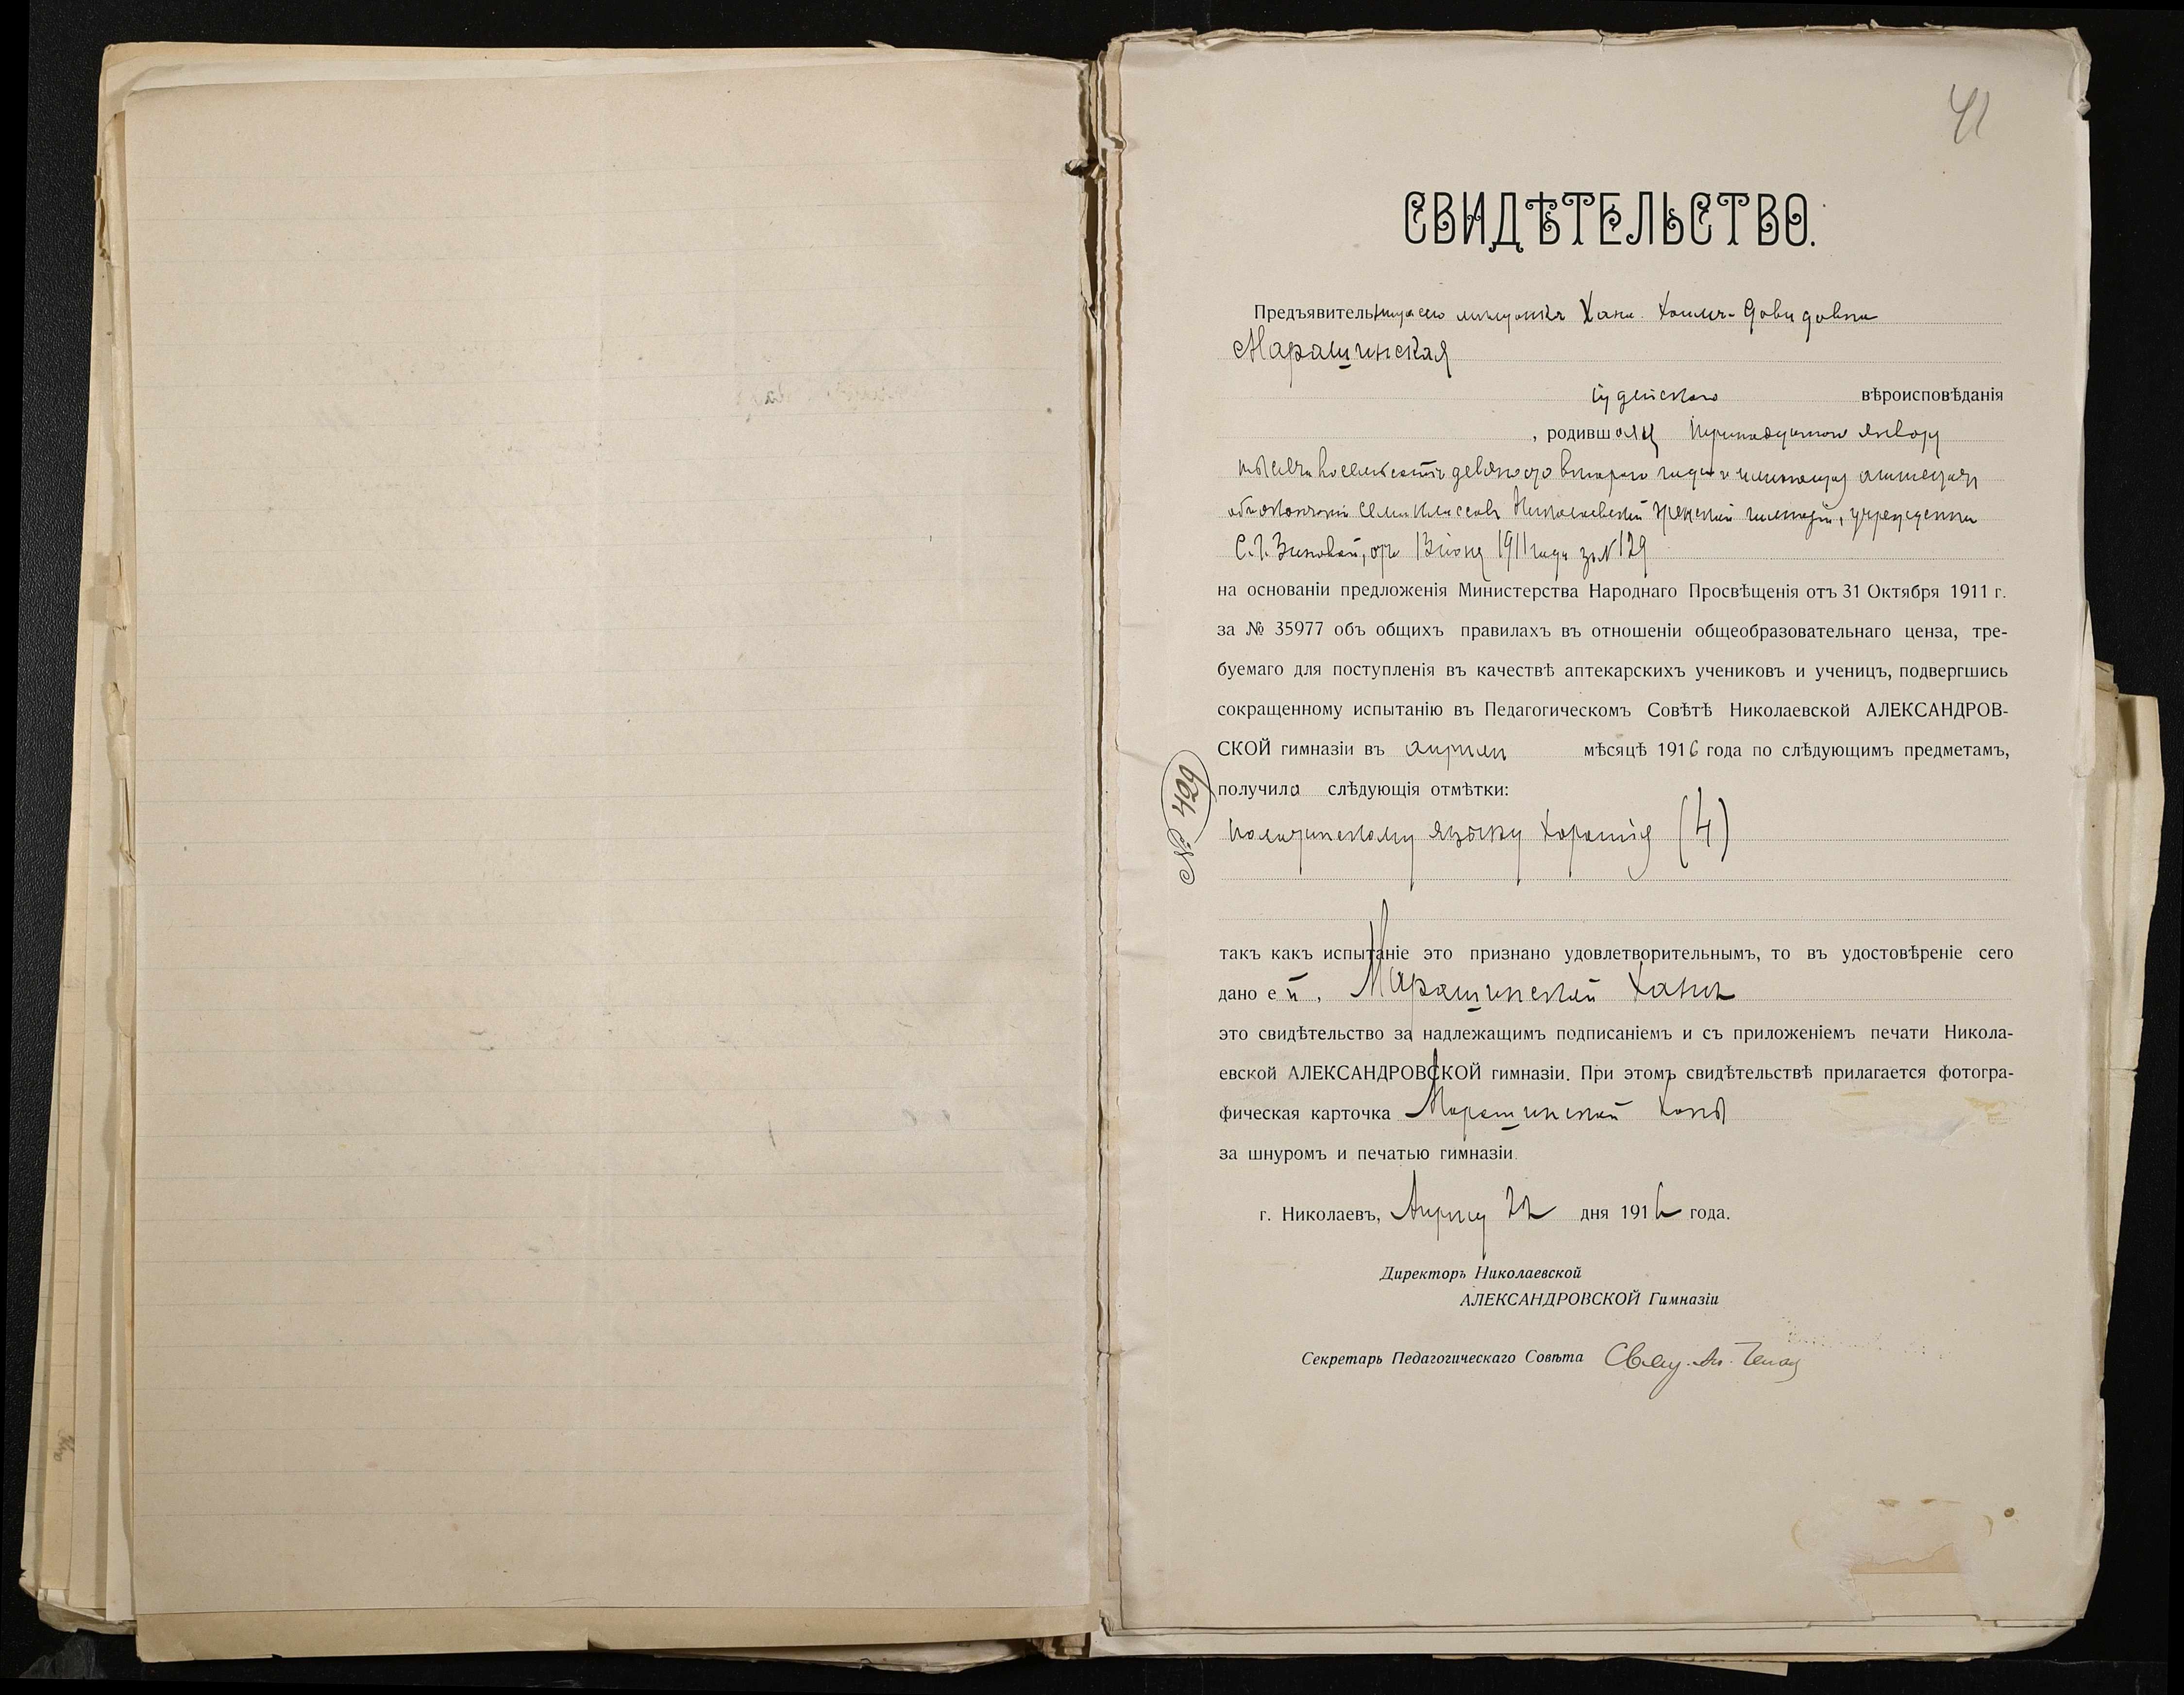 41
СВИДѢТЕЛЬСТВО.
Предъявительница сего мѣщанка Хана Хаимъ-Довидовна
Марашинская
іудейскаго вѣроисповѣданія
, родившаяся тринадцатаго января
тысяча восемьсотъ девяносто второго года и имѣющая аттестатъ
объ окончаніи семи классовъ Николаевской женской гимназіи, учрежденной
С. І. Зиновой, отъ 1911 года за № 129
на основаніи предложенія Министерства Народнаго Просвѣщенія отъ 31 Октября 1911 г.
за № 35977 объ общихъ правилахъ въ отношеніи общеобразовательнаго ценза, тре-
буемаго для поступленія въ качествѣ аптекарскихъ учениковъ и ученицъ, подвергшись
сокращенному испытанію въ Педагогическомъ Совѣтѣ Николаевской АЛЕКСАНДРОВ-
СКОЙ гимназіи въ апрѣлѣ мѣсяцѣ 1916 года по слѣдующимъ предметамъ,
получила слѣдующія отмѣтки:
№ 429
по латинскому языку хорошія (4)
такъ какъ испытаніе это признано удовлетворительнымъ, то въ удостовѣреніе сего
дано ей, Марашинской Ханѣ
это свидѣтельство за надлежащимъ подписаніемъ и съ приложеніемъ печати Никола-
евской АЛЕКСАНДРОВСКОЙ гимназіи. При этомъ свидѣтельствѣ прилагается фотогра-
фическая карточка Марашинской Ханы
за шнуромъ и печатью гимназіи.
г. Николаевъ, Апрѣля 22 дня 1916 года.
Директоръ Николаевской
АЛЕКСАНДРОВСКОЙ Гимназіи
Секретарь Педагогическаго Совѣта